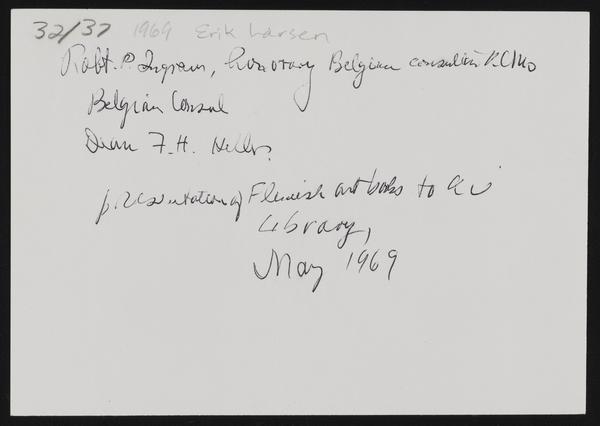 32/37 1969 Erik Larsen
Robt. P. Ingram, honorary Belgian consul in K.C. Mo
Belgian Consul
Dean F. H. Heller
presentation of Flemish art books to
Library,
May 1969